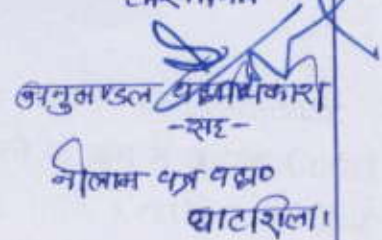 अनुमण्डल पदाधिकारी
-सह-
नीलाम पत्र पदा०
घाटशिला।